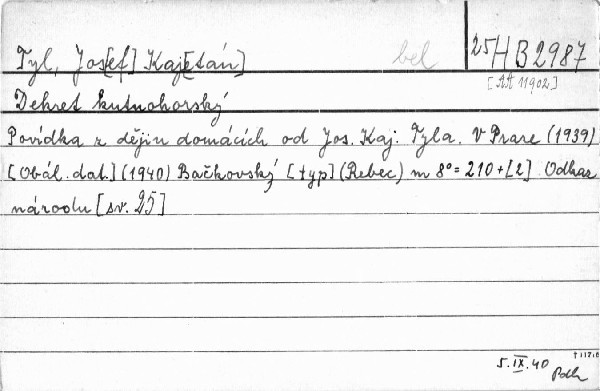 Tyl, Jos[ef] Kaj[etán]
bel
25 H B 2987
[AA 11902]
Dekret kutnohorský
Povídka z dějin domácích od Jos. Kaj. Tyla. V Praze (1939)
[Obál. dat.] (1940) Bačkovský [typ] (Rebec) m 8° = 210 + [2] Odkaz
národu [sv. 25]
5. IX. 40